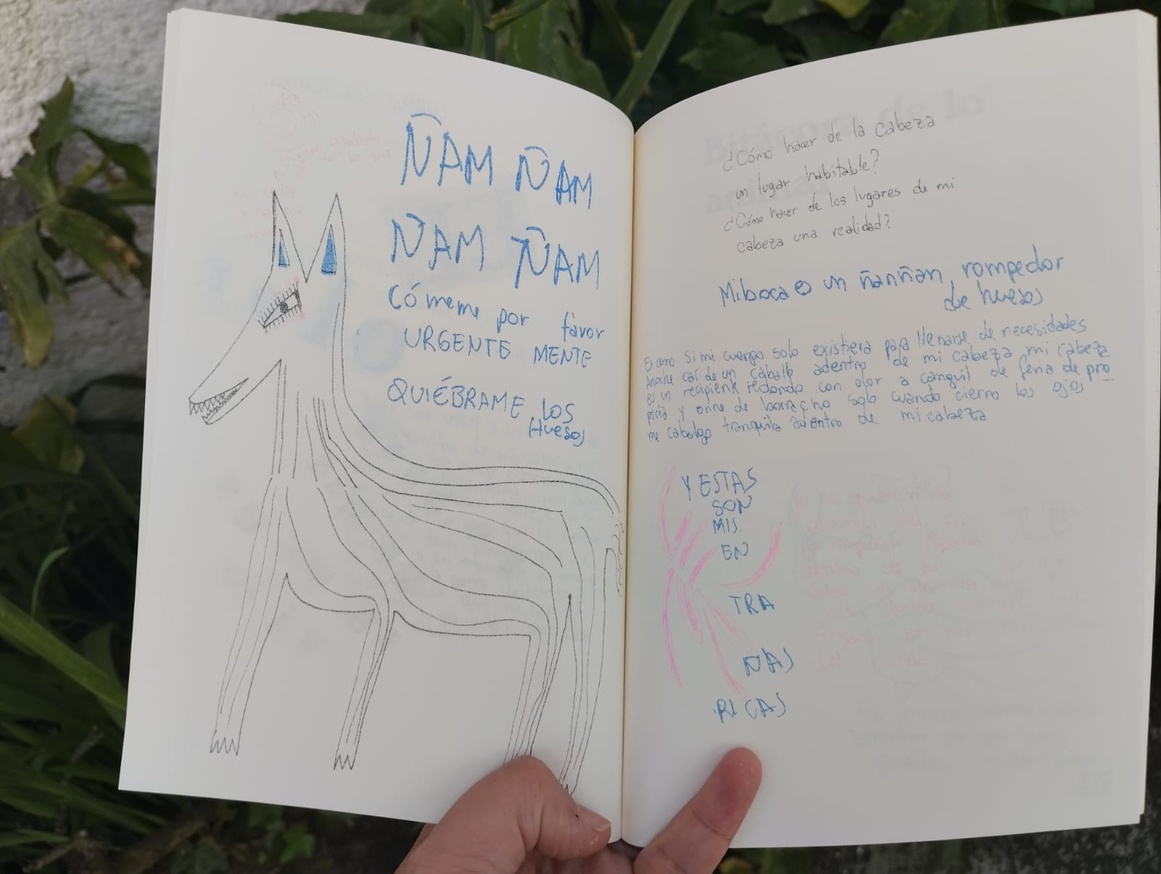 ÑAM ÑAM
ÑAM ÑAM
Cómeme por favor
URGENTE MENTE
QUIÉBRAME LOS
HUESOS
¿Cómo hacer de la cabeza
un lugar habitable?
¿Cómo hacer de los lugares de mi
cabeza una realidad?
Mi boca es un ñanñan, rompedor
de huesos
Es como si mi cuerpo solo existiera para llenarse de necesidades
Anoche caí de un caballo adentro de mi cabeza mi cabeza
es un recipiente redondo con olor a canguil de feria de pro
picia y orina de borracho solo cuando cierro los ojos
me cabalgo tranquila adentro de mi cabeza
Y ESTAS
SON
MIS
EN
TRA
ÑAS
RICAS